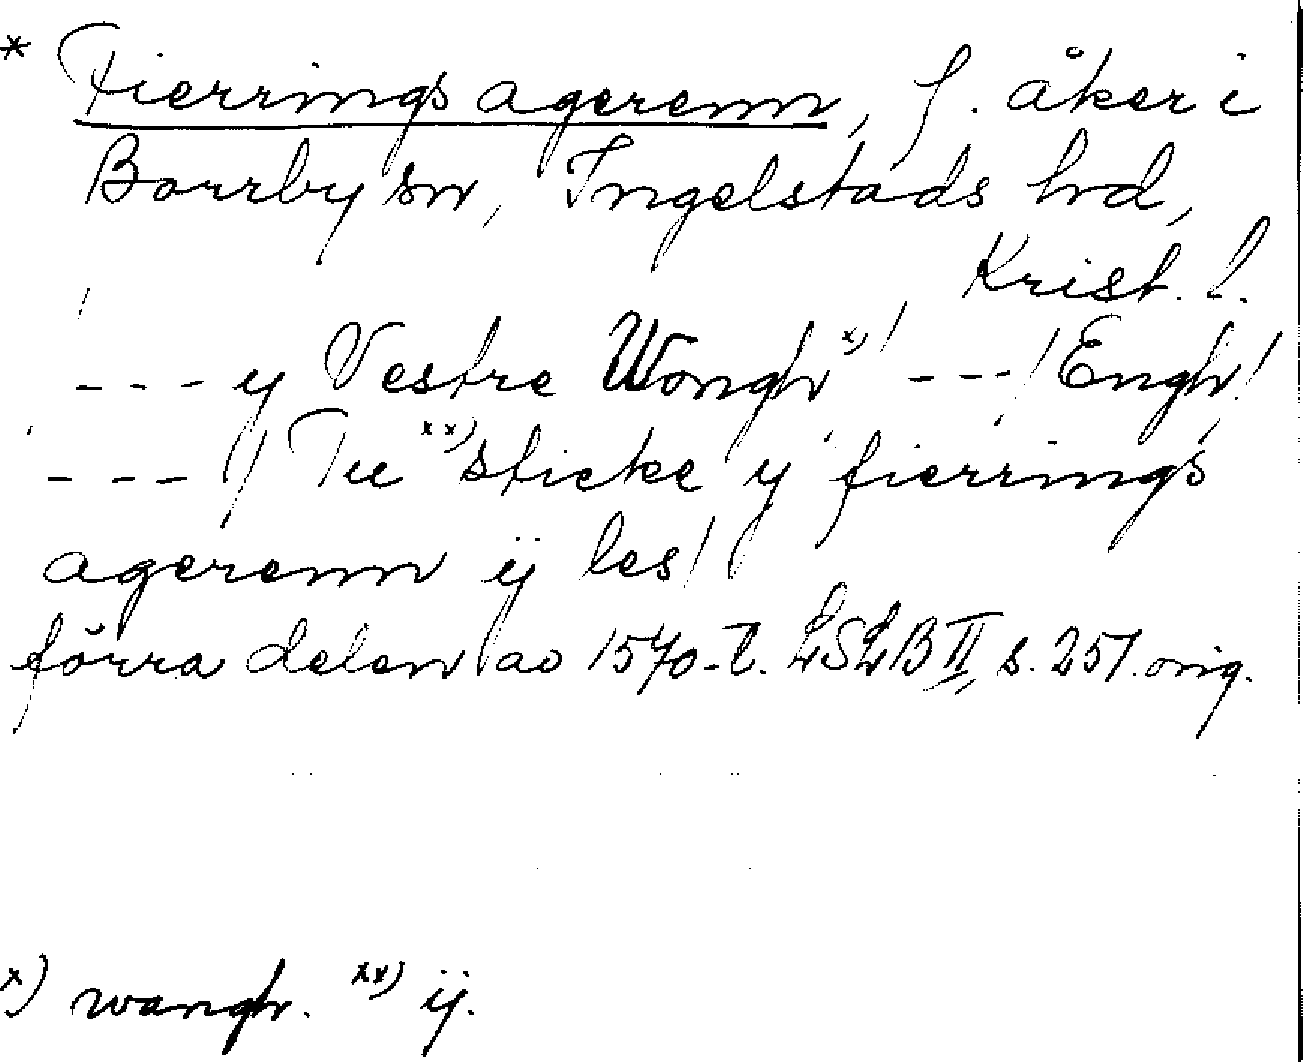 * Fierrings agerenn, f. åker i
Borrby sn, Ingelstads hd,
Krist. l.
--- y Vestre Wongh x) / --- / Engh /
--- / Tue xx) sticke y fierrings
agerenn ij les /
förra delen av 1570-t. LSLB II, s. 251. orig.
x) wangh. xx) ij.